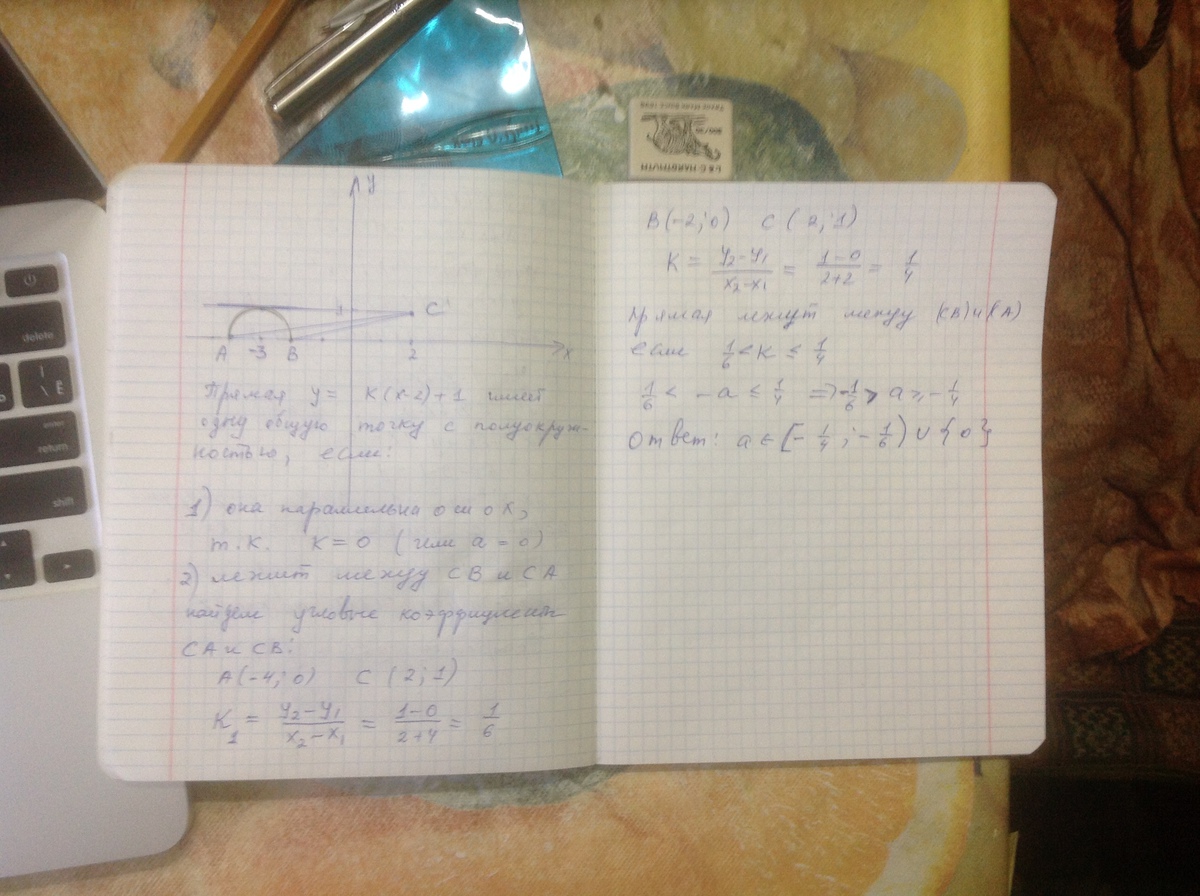 y
1
C
A -3 B 2 x
Прямая y = K(x-2)+1 имеет
одну общую точку с полуокруж-
ностью, если:
1) она параллельна оси OX,
т.к. K = 0 (или a = 0)
2) лежит между CB и CA
найдем угловые коэффициенты
CA и CB:
A(-4; 0) C(2; 1)
K₁ = (y₂-y₁)/(x₂-x₁) = (1-0)/(2+4) = 1/6
B(-2; 0) C(2; 1)
K = (y₂-y₁)/(x₂-x₁) = (1-0)/(2+2) = 1/4
Прямая лежит между (CB) и (CA)
если 1/6 < K ≤ 1/4
1/6 < -a ≤ 1/4 => -1/6 > a ≥ -1/4
Ответ: a ∈ [-1/4; -1/6) ∪ {0}
L&C HARDTMUTH
delete
return
shift